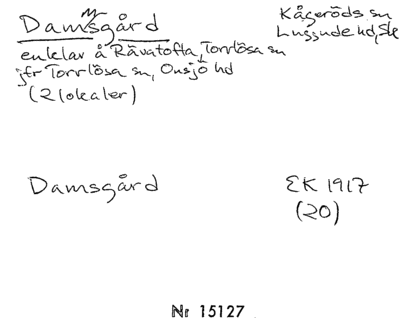 Damsgård
Kågeröds sn
Luggude hd, Sk
enklav å Rävatofta, Torrlösa sn
jfr Torrlösa sn, Onsjö hd
(2 lokaler)
Damsgård
EK 1917
(20)
Nr 15127